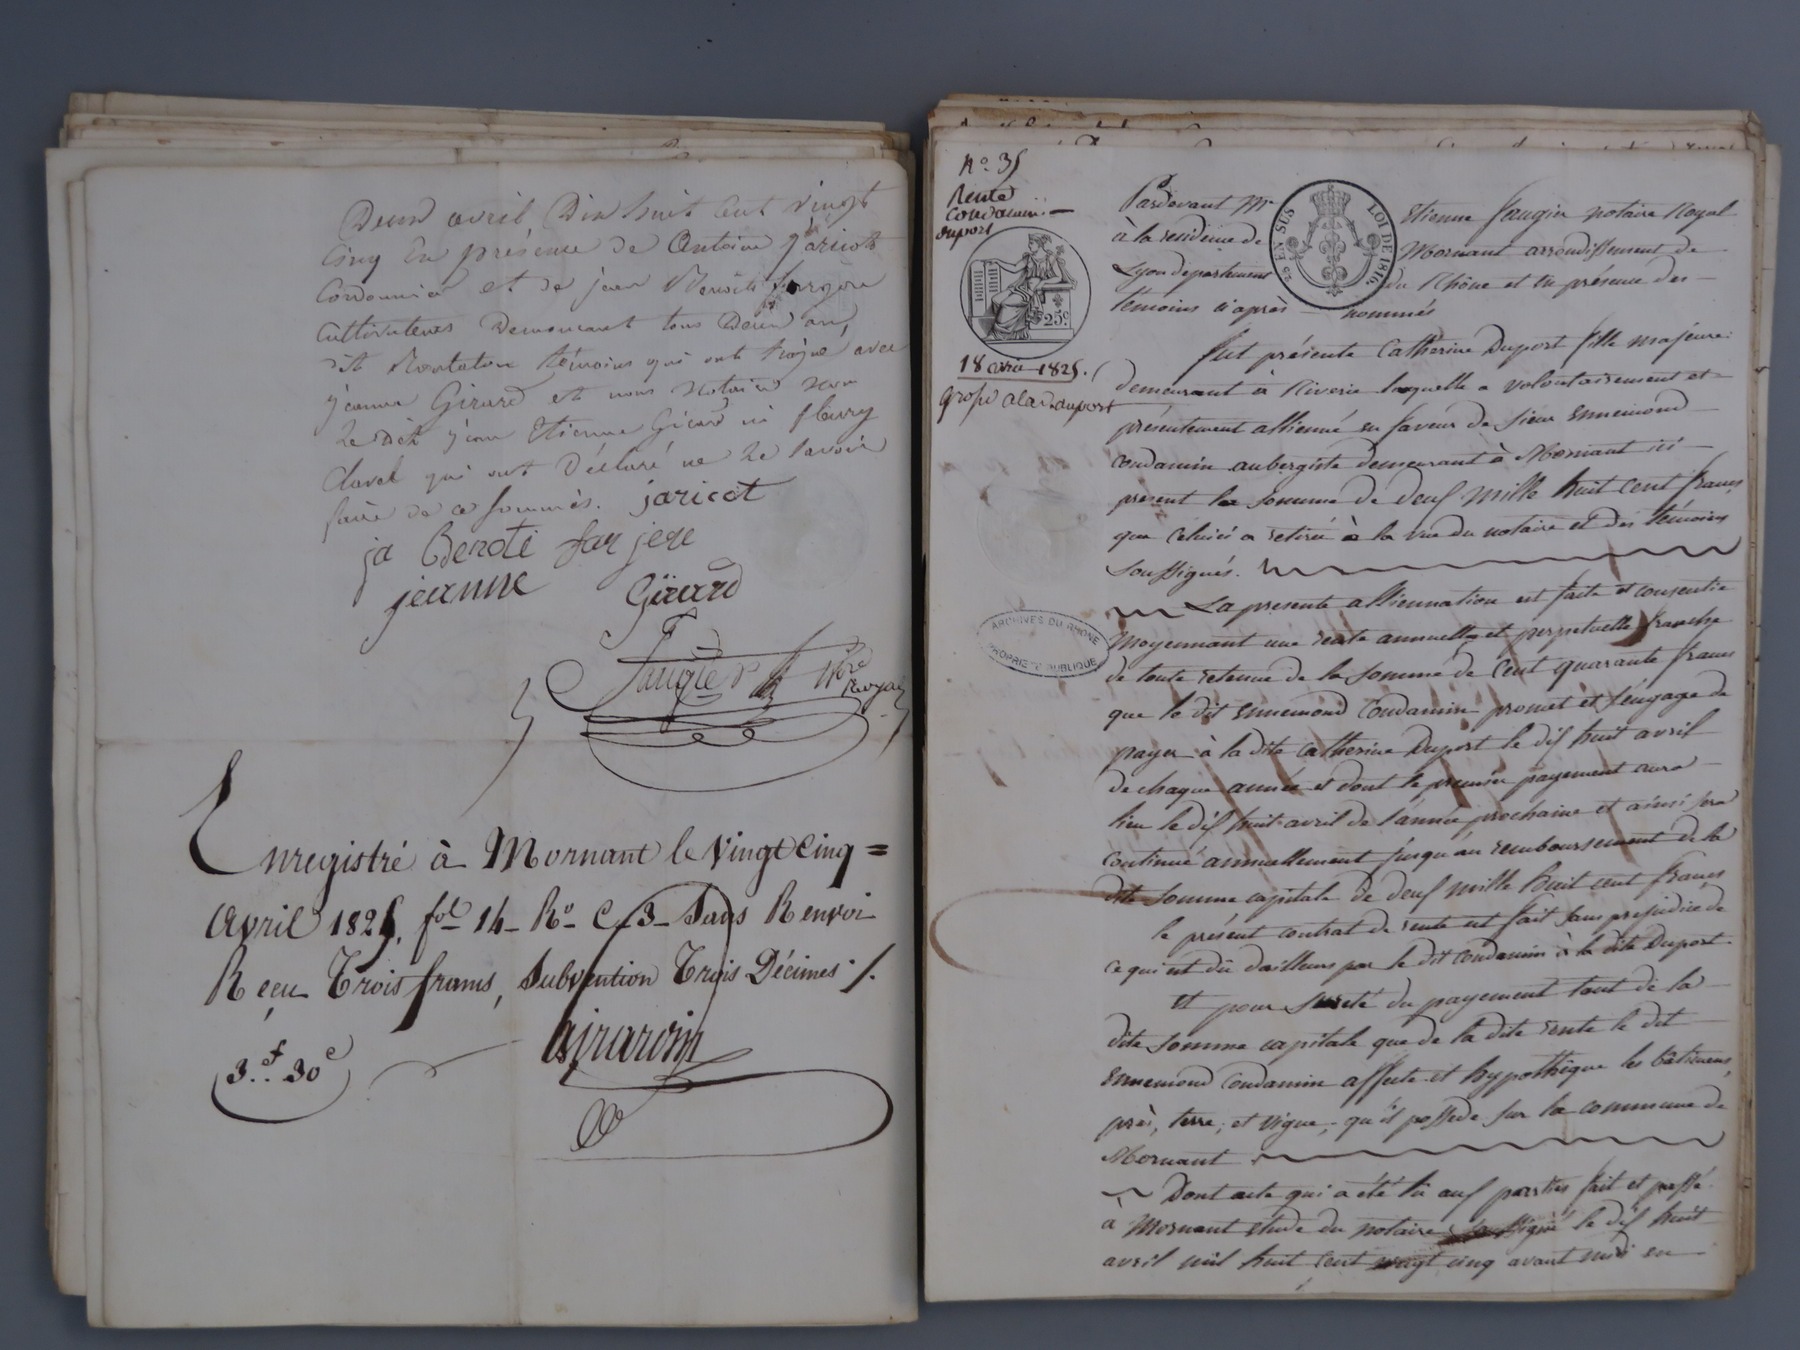 Deux avril Dix huit Cent vingt
Cinq En présence de Antoine Jaricot
Cordonnier et de jean Benoit fargère
Cultivateurs Demeurant tous Deux au
dit témoins qui ont signé avec
jeanne Girard et nous Notaire non
Le Dit jean Etienne Girard ni fleury
Clavel qui ont Déclaré ne Le savoir
faire de ce sommés. jaricot
ja Benoti farjere
jeanne Girard
Faugier Nre
Royal
Enregistré à Mornant le Vingt Cinq =
Avril 1825, fol 14 Ro C 3 Sans Renvoi
Reçu Trois francs, Subvention Trois Décimes ./.
3.f 30c
No. 35
Rente
Condamin
duport
25 EN SUS
LOI DE 1816
25c
18 avril 1825.
grosse a lad. duport
ARCHIVES DU RHONE
PROPRIETE PUBLIQUE
Pardevant Me Etienne faugier notaire Royal
à la résidence de Mornant arrondissement de
Lyon departement du Rhône et En présence des
témoins ci après nommés
fut présente Catherine Duport fille majeure
demeurant à Riverie laquelle a volontairement et
présentement alliénné en faveur de sieur Ennemond
condamin aubergiste demeurant à Mornant ici
present la somme de deux mille huit cent francs
que celuici a retiré à la vue du notaire et des témoins
soussignés.
La presente alliennation est faite et consentie
moyennant une rente annuelle et perpetuelle franche
de toute retenue de la somme de Cent quarante francs
que le dit Ennemond Condamin promet et s'engage de
payer à la dite Catherine Duport le dix huit avril
de chaque année et dont le premier payement aura
lieu le dix huit avril de l'année prochaine et ainsi sera
continué annuellement jusqu'au remboursement de la
dite somme capitale de deux mille huit cent francs
le présent contrat de rente est fait sans prejudice de
ce qui est dû dailleurs par le dit condamin à la dite Duport.
Et pour sureté du payement tant de la
dite somme capitale que de la dite rente le dit
Ennemond Condamin affecte et hypothèque les bâtimens,
près, terre, et vigne, qu'il possede sur la commune de
Mornant
Dont acte qui a été lû aux parties fait et passé
à Mornant étude du notaire soussigné le dix huit
avril mil huit cent vingt cinq avant midi en